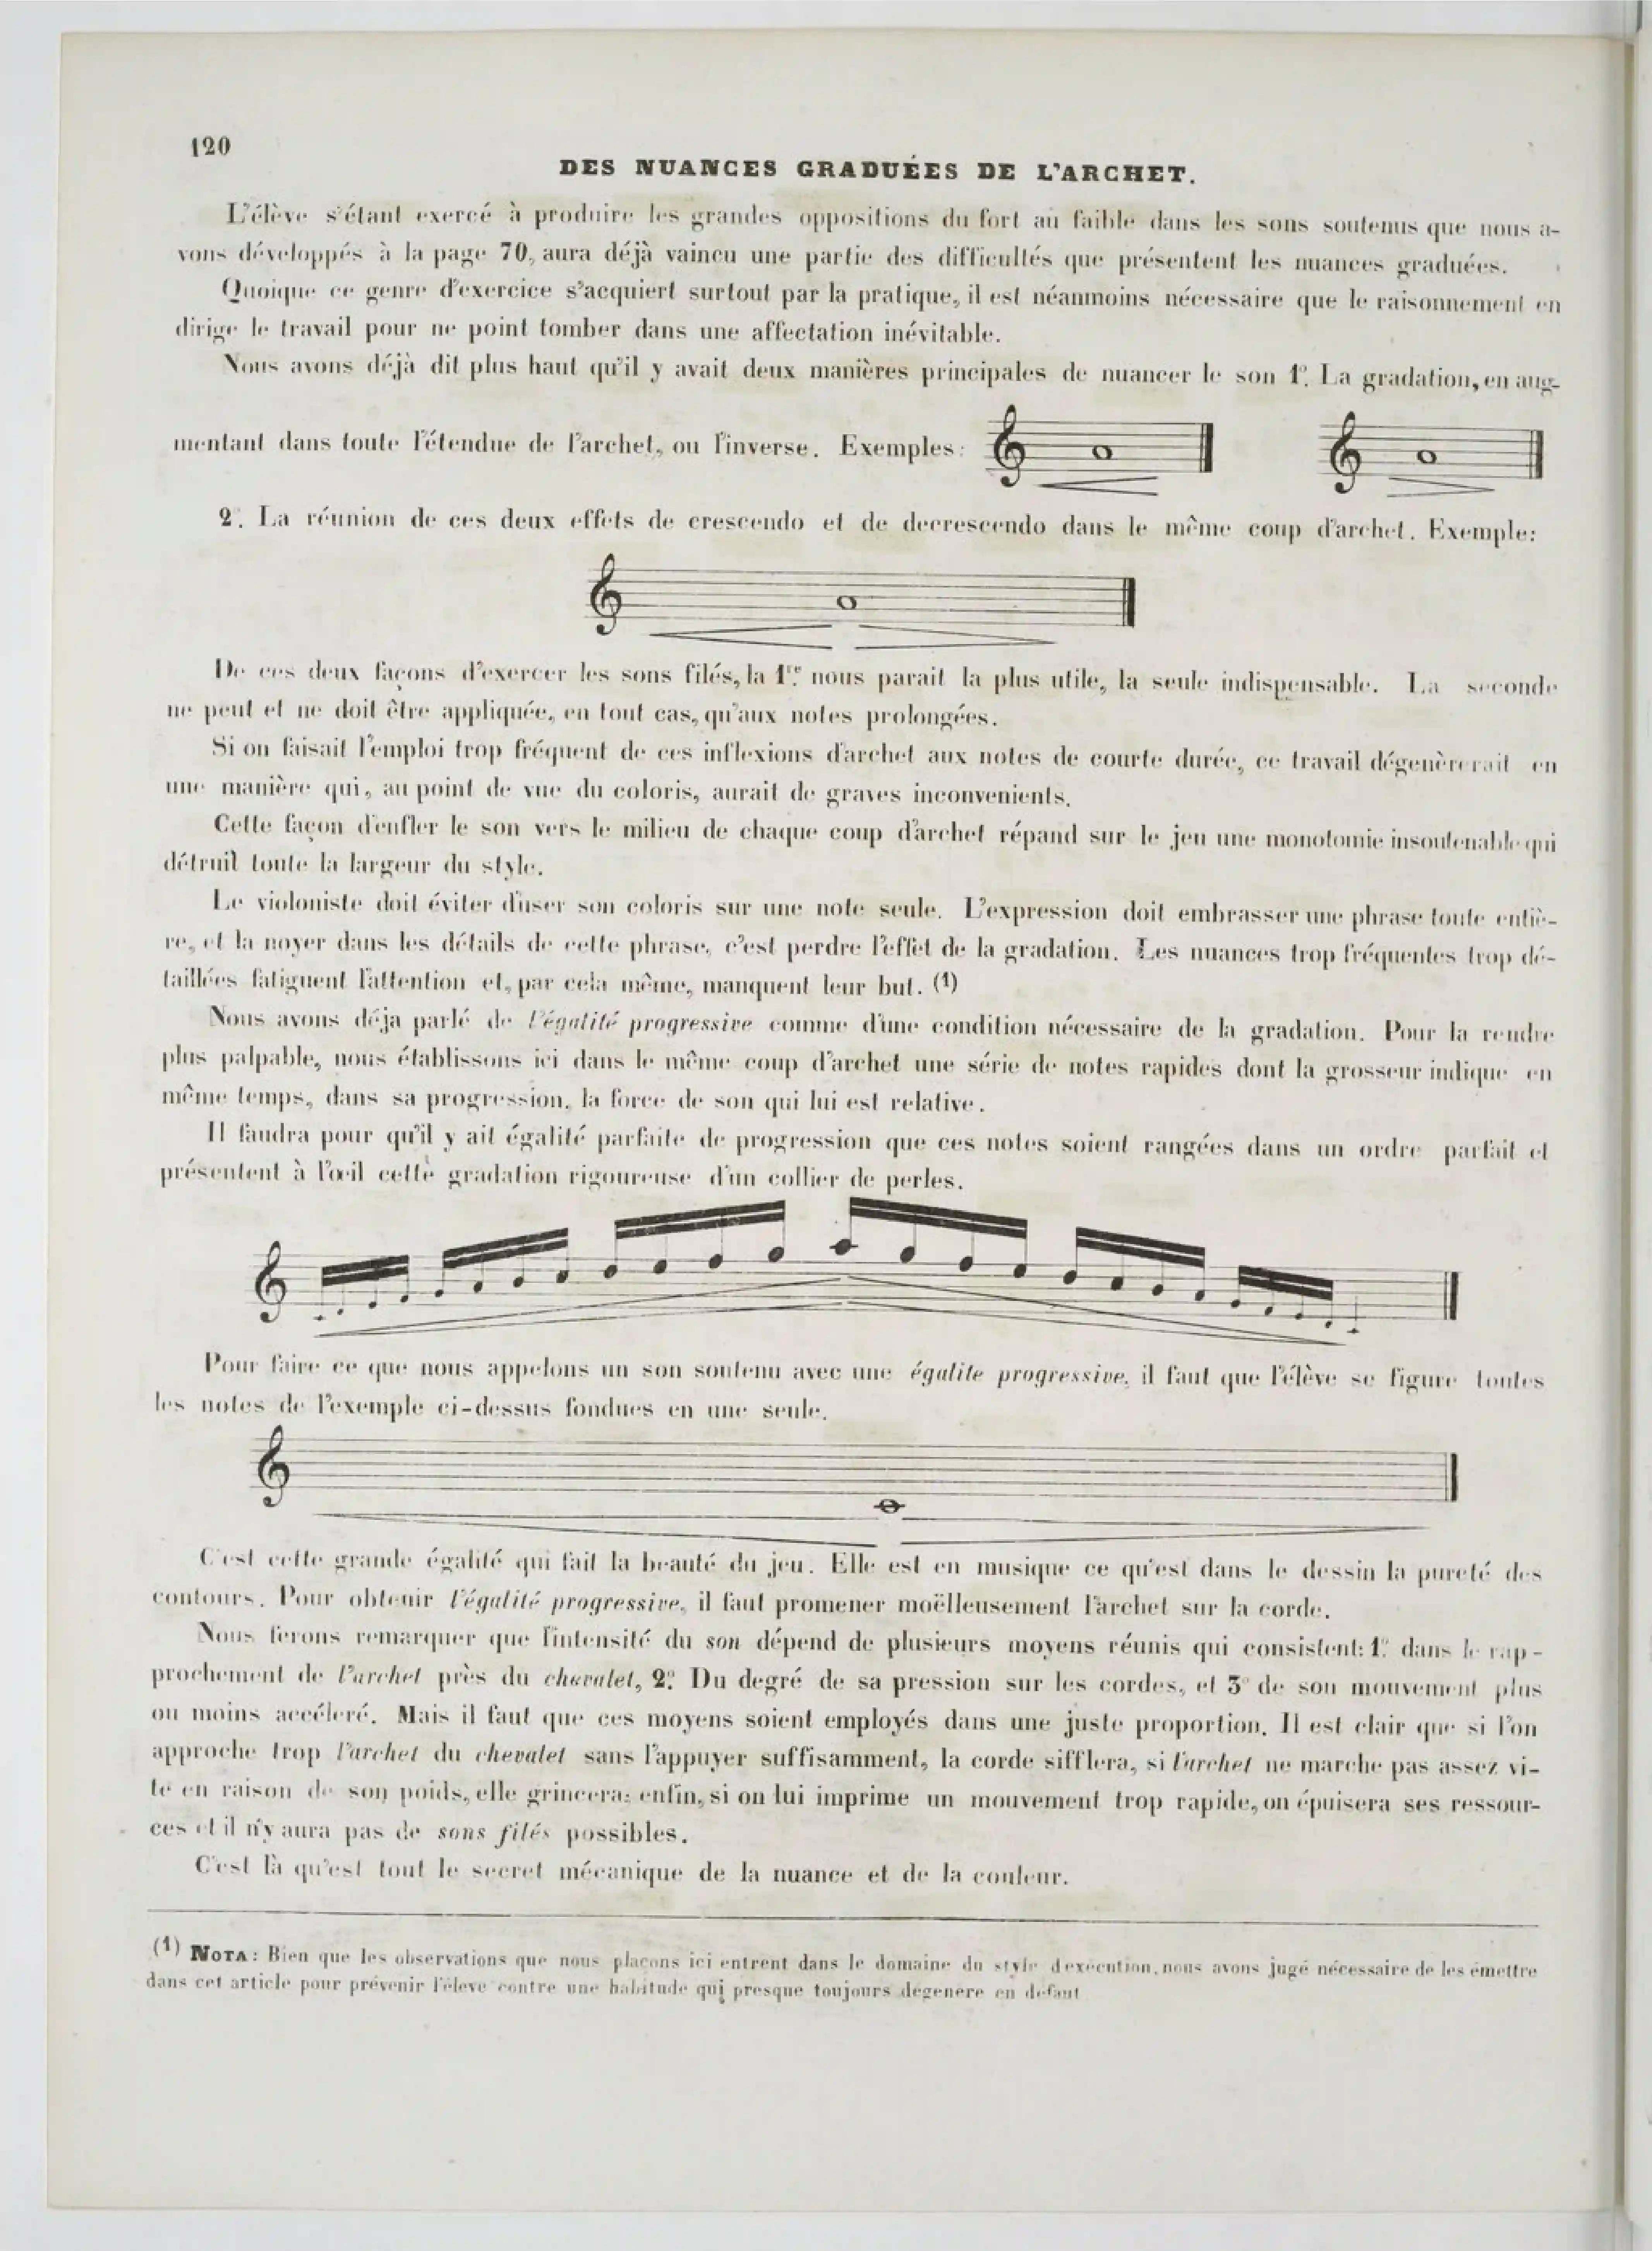 120
DES NUANCES GRADUÉES DE L'ARCHET.
L'élève s'étant exercé à produire les grandes oppositions du fort au faible dans les sons soutenus que nous a-
vons développés à la page 70, aura déjà vaincu une partie des difficultés que présentent les nuances graduées.
Quoique ce genre d'exercice s'acquiert surtout par la pratique, il est néanmoins nécessaire que le raisonnement en
dirige le travail pour ne point tomber dans une affectation inévitable.
Nous avons déjà dit plus haut qu'il y avait deux manières principales de nuancer le son 1º. La gradation, en aug-
mentant dans toute l'étendue de l'archet, ou l'inverse. Exemples:
2º. La réunion de ces deux effets de crescendo et de decrescendo dans le même coup d'archet. Exemple:
De ces deux façons d'exercer les sons filés, la 1re. nous parait la plus utile, la seule indispensable. La seconde
ne peut et ne doit être appliquée, en tout cas, qu'aux notes prolongées.
Si on faisait l'emploi trop fréquent de ces inflexions d'archet aux notes de courte durée, ce travail dégenèrerait en
une manière qui, au point de vue du coloris, aurait de graves inconvenients.
Cette façon d'enfler le son vers le milieu de chaque coup d'archet répand sur le jeu une monotomie insoutenable qui
détruit toute la largeur du style.
Le violoniste doit éviter d'user son coloris sur une note seule. L'expression doit embrasser une phrase toute entiè-
re, et la noyer dans les détails de cette phrase, c'est perdre l'effet de la gradation. Les nuances trop fréquentes trop dé-
taillées fatiguent l'attention et, par cela même, manquent leur but. (1)
Nous avons déja parlé de l'égalité progressive comme d'une condition nécessaire de la gradation. Pour la rendre
plus palpable, nous établissons ici dans le même coup d'archet une série de notes rapides dont la grosseur indique en
même temps, dans sa progression, la force de son qui lui est relative.
Il faudra pour qu'il y ait égalité parfaite de progression que ces notes soient rangées dans un ordre parfait et
présentent à l'œil cette gradation rigoureuse d'un collier de perles.
Pour faire ce que nous appelons un son soutenu avec une égalite progressive, il faut que l'élève se figure toutes
les notes de l'exemple ci-dessus fondues en une seule.
C'est cette grande égalité qui fait la beauté du jeu. Elle est en musique ce qu'est dans le dessin la pureté des
contours. Pour obtenir l'égalité progressive, il faut promener moëlleusement l'archet sur la corde.
Nous ferons remarquer que l'intensité du son dépend de plusieurs moyens réunis qui consistent: 1º. dans le rap-
prochement de l'archet près du chevalet, 2º. Du degré de sa pression sur les cordes, et 3º de son mouvement plus
ou moins accéleré. Mais il faut que ces moyens soient employés dans une juste proportion. Il est clair que si l'on
approche trop l'archet du chevalet sans l'appuyer suffisamment, la corde sifflera, si l'archet ne marche pas assez vi-
te en raison de son poids, elle grincera; enfin, si on lui imprime un mouvement trop rapide, on épuisera ses ressour-
ces et il n'y aura pas de sons filés possibles.
C'est là qu'est tout le secret mécanique de la nuance et de la couleur.
(1) NOTA: Bien que les observations que nous plaçons ici entrent dans le domaine du style d'exécution, nous avons jugé nécessaire de les émettre
dans cet article pour prévenir l'éleve contre une habitude qui presque toujours dégenere en défaut